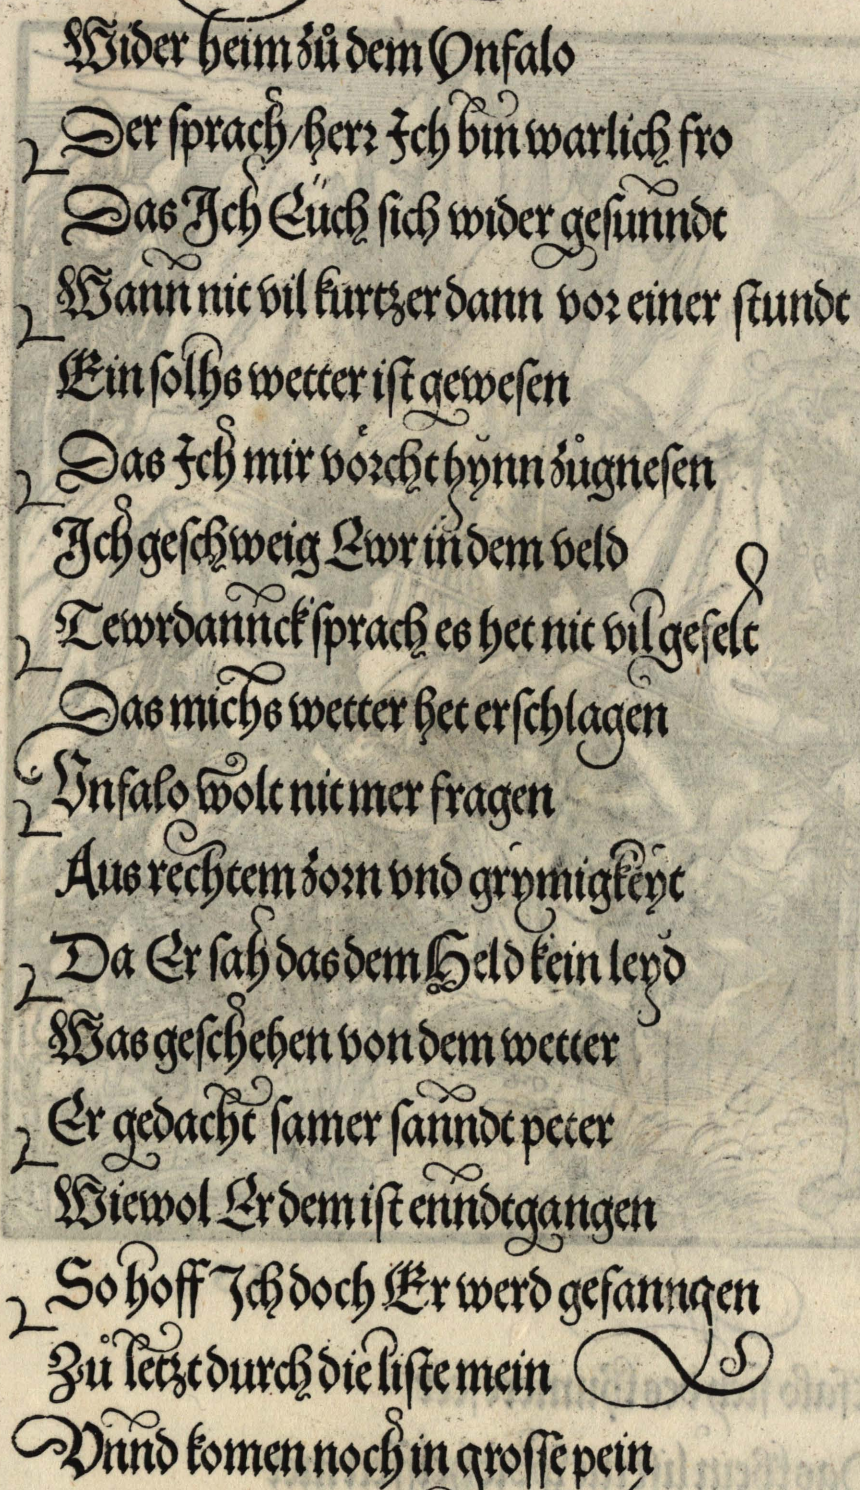 Wider heim zů dem Vnfalo
Der sprach/herr Ich bin warlich fro
Das Ich Eüch sich wider gesunndt
Wann nit vil kurtzer dann vor einer stundt
Ein solhs wetter ist gewesen
Das Ich mir vorcht hynn zůgnesen
Ich geschweig Ewr in dem veld
Tewrdannck sprach es het nit vil gefelt
Das michs wetter het erschlagen
Vnfalo wolt nit mer fragen
Aus rechtem zorn vnd grymigkeyt
Da Er sah das dem Held kein leyd
Was geschehen von dem wetter
Er gedacht samer sanndt peter
Wiewol Er dem ist enndtgangen
So hoff Ich doch Er werd gefanngen
Zů letzt durch die liste mein
Vnnd komen noch in grosse pein